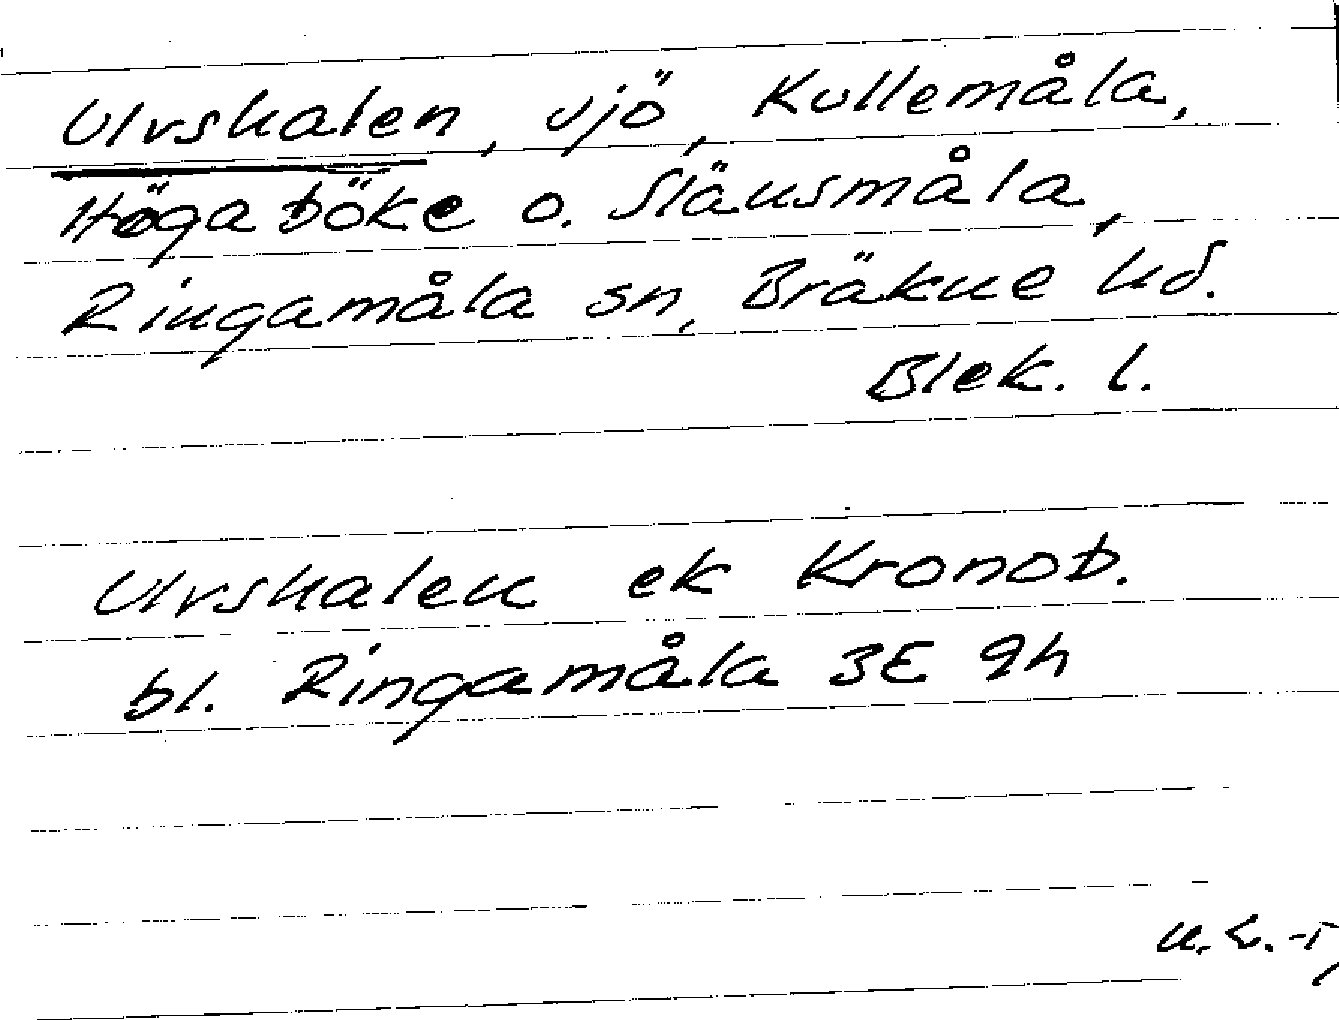 Ulvshalen, sjö, Kullemåla,
Högaböke o. Slänsmåla,
Ringamåla sn, Bräkne hd.
Blek. l.
Ulvshalen ek Kronob.
bl. Ringamåla 3E 9h